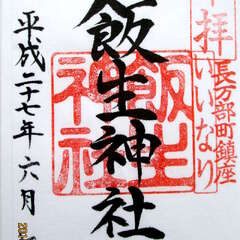 拝
長万部町鎮座
いいなり
飯生神社
飯生
神社
平成二十七年六月